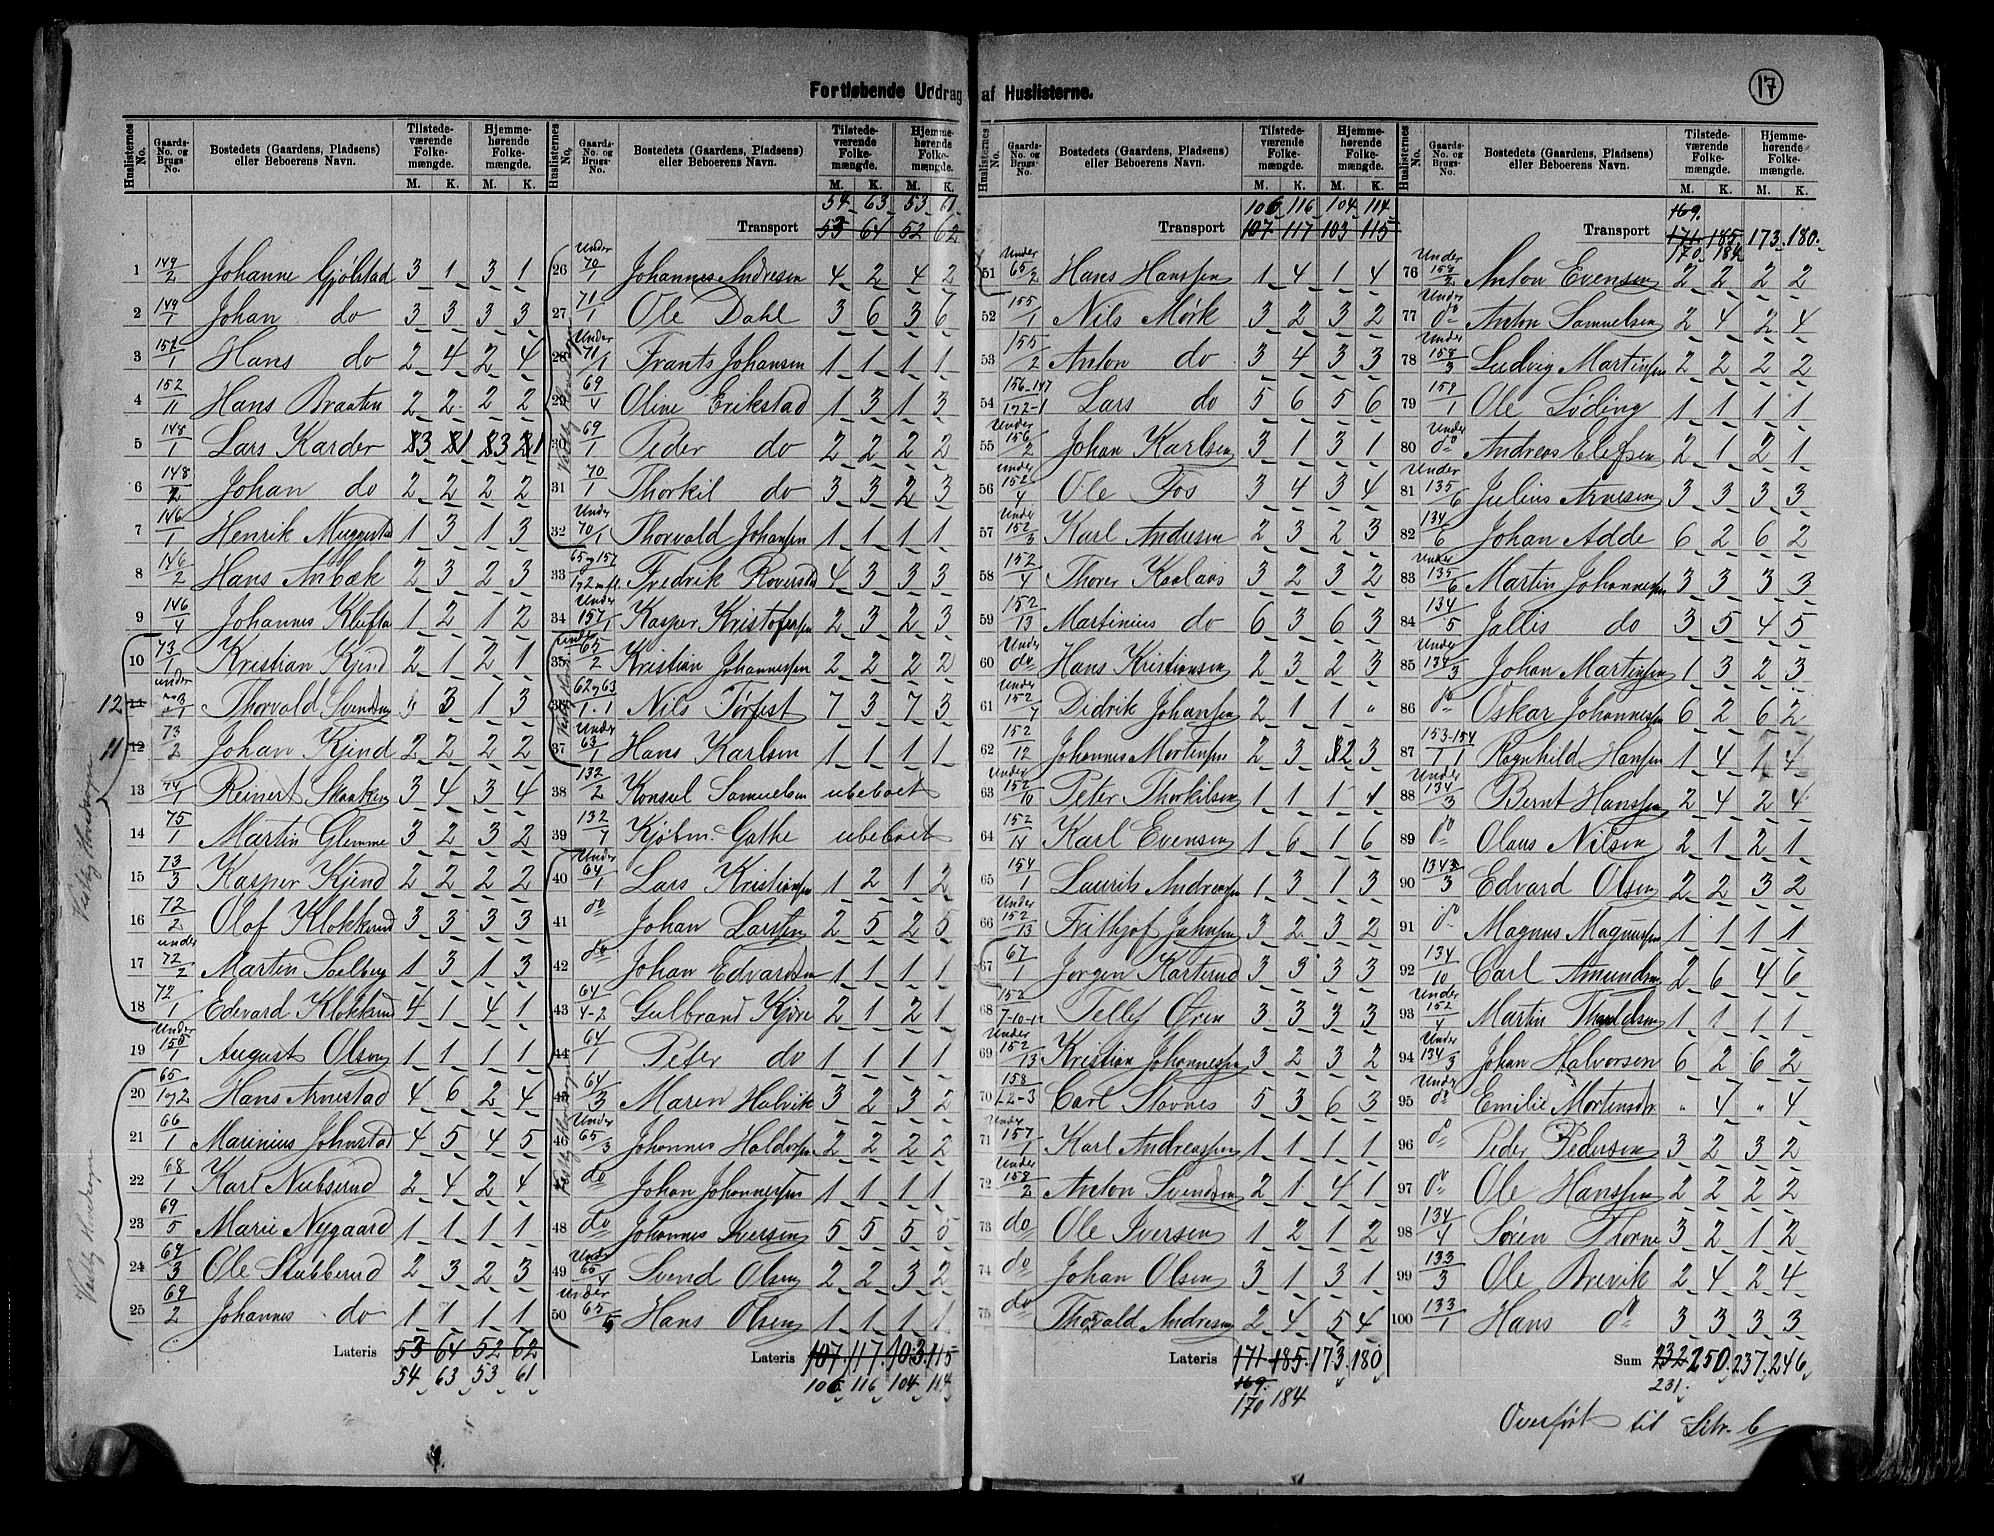 17
Fortløbende Uddrag af Huslisterne.
Huslisternes No. Gaards-No. og Brugs-No. Bostedets (Gaardens, Pladsens) eller Beboerens Navn. Tilstedeværende Folkemængde. M. K. Hjemmehørende Folkemængde. M. K.
1 149/2 Johanne Gjølstad 3 1 3 1
2 149/1 Johan do 3 3 3 3
3 151/1 Hans do 2 4 2 4
4 152/11 Hans Braaten 2 2 2 2
5 148/1 Lars Karder 3 1 3 1
6 148/2 Johan do 2 2 2 2
7 146/1 Henrik Muggestad 1 3 1 3
8 146/2 Hans Aabæk 2 3 2 3
9 146/4 Johannes Kløfta 1 2 1 2
10 73/1 Kristian Kjind 2 1 2 1
12 11 under 73/1 Thorvald Svendsen " 3 1 3
11 12 73/2 Johan Kjind 2 2 2 2
13 74/1 Reinert Skaaken 3 4 3 4
14 75/1 Martin Glemme 3 2 3 2
15 73/3 Kasper Kjind 2 2 2 2
16 72/2 Olaf Klokkerud 3 3 3 3
17 under 72/2 Martin Solberg 1 3 1 3
18 72/1 Edvard Klokkerud 4 1 4 1
19 Under 150/1 August Olsen 1 1 1 1
20 65/1 og 2 Hans Arnestad 4 6 2 4
21 66/1 Marinius Johnstad 4 5 4 5
22 68/1 Karl Nubserud 2 4 2 4
23 69/5 Marie Nygaard 1 1 1 1
24 69/3 Ole Stubberud 2 3 2 3
25 69/2 Johannes do 1 1 1 1
Lateris 53 64 52 62
54 63 53 61
54 63 53 61
Transport 53 64 52 62
26 Under 70/1 Johannes Andresen 4 2 4 2
27 71/1 Ole Dahl 3 6 3 6
28 Under 71/1 Frants Johansen 1 1 1 1
29 69/4 Oline Erikstad 1 3 1 3
30 69/1 Peder do 2 2 2 2
31 70/1 Thorkil do 3 3 2 3
32 Under 70/1 Thorvald Johansen 1 1 1 1
33 65 og 157 Fredrik Roverstad 4 3 3 3
34 Under 157/1 Kasper Kristofersen 2 3 2 3
35 Under 65/2 Kristian Johannessen 2 2 2 2
36 62 og 63/1-1 Nils Torfest 7 3 7 3
37 Under 63/1 Hans Karlsen 1 1 1 1
38 132/2 Konsul Samuelsen ubeboet
39 132/4 Kjøbm. Gathe ubeboet
40 Under 64/1 Lars Kristiansen 1 2 1 2
41 do Johan Larssen 2 5 2 5
42 do Johan Edvardsen 1 1 1 1
43 64/4-2 Gulbrand Kjøre 2 1 2 1
44 64/1 Peter do 1 1 1 1
45 64/3 Maren Halvik 3 2 3 2
46 Under 65/3 Johannes Haldorsen 2 2 2 2
47 do Johan Johannessen 1 1 1 1
48 do Johannes Iversen 5 5 5 5
49 Under 65/4 Svend Olsen 2 2 3 2
50 Under 65/5 Hans Olsen 1 1 1 1
Lateris 107 117 103 115
106 116 104 114
106 116 104 114
Transport 107 117 103 115
51 Under 65/2 Hans Hanssen 1 4 1 4
52 155/1 Nils Mørk 3 2 3 2
53 155/2 Anton do 3 4 3 3
54 156-147/1 o 2-1 Lars do 5 6 5 6
55 Under 156/2 Johan Karlsen 3 1 3 1
56 152/4 Ole Fos 3 4 3 4
57 Under 152/3 Karl Andersen 2 3 2 3
58 152/4 Thorer Kaalaas 3 2 3 2
59 152/13 Martinius do 6 3 6 3
60 Under do Hans Kristiansen 2 3 2 3
61 Under 152/4 Didrik Johansen 2 1 1 "
62 152/12 Johannes Mortensen 2 3 2 3
63 Under 152/10 Peter Thorkilsen 1 1 1 1
64 152/14 Karl Evensen 1 6 1 6
65 154/1 Laurits Andreassen 1 3 1 3
66 Under 152/13 Frithjof Johnsen 3 2 3 2
67 67/1 Jørgen Karterud 3 3 3 3
68 152/7-10-12 Tellef Øren 3 3 3 3
69 Under 152/13 Kristian Johannessen 3 2 3 2
70 158/1-2-3 Carl Stavnes 5 3 6 3
71 Under 157/1 Karl Andreassen 1 1 1 1
72 Under 158/2 Anton Svendsen 2 1 4 1
73 do Ole Iversen 1 2 1 2
74 do Johan Olsen 3 1 3 1
75 do Thorvald Andresen 2 4 5 4
Lateris 171 185 173 180
169
170 184
169
Transport 171 185 173 180
170 184
76 Under 158/2 Anton Evensen 2 2 2 2
77 Under do Anton Samuelsen 2 4 2 4
78 158/3 Ludvig Martinsen 2 2 2 2
79 159/1 Ole Søding 1 1 1 1
80 Under do Andreas Elefsen 2 1 2 1
81 Under 135/6 Julius Arnesen 3 3 3 3
82 134/6 Johan Adde 6 2 6 2
83 Under 135/6 Martin Johannessen 3 3 3 3
84 134/5 Jalles do 3 5 4 5
85 Under 134/3 Johan Martinsen 1 3 2 3
86 do Oskar Johannessen 6 2 6 2
87 153-154/1 1 Ragnhild Hansen 1 4 1 4
88 Under 134/3 Bernt Hanssen 2 4 2 4
89 do Olaus Nilsen 2 1 2 1
90 134/3 Edvard Olsen 2 2 3 2
91 do Magnus Magnussen 1 1 1 1
92 134/10 Carl Amundsen 2 6 4 6
93 Under 152/4 Martin Thoraldsen 1 1 1 1
94 134/3 Johan Halvorsen 6 2 6 2
95 Under do Emilie Mortensdr. " 4 " 4
96 do Peder Pedersen 3 2 3 2
97 do Ole Hanssen 2 2 2 2
98 134/4 Søren Thorne 3 2 1 2
99 133/3 Ole Brevik 2 4 2 4
100 133/1 Hans do 3 3 3 3
Sum 232 250 237 246
231
Overført til Litr. C
Vestby Hovedsogn
Vestby Hovedsogn
Vestby Hovedsogn
Vestby Hovedsogn
Vestby Hovedsogn